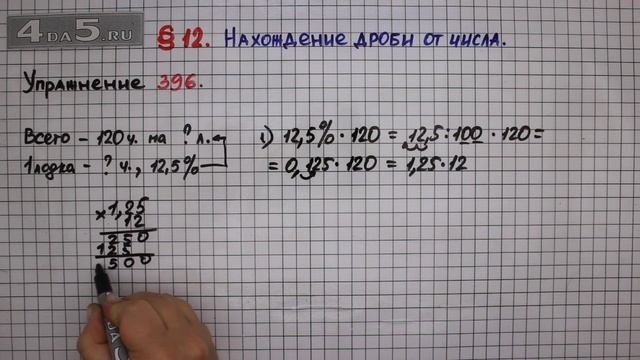 4DA5.RU
§ 12. Нахождение дроби от числа.
Упражнение 396.
Всего – 120 ч. на ? л.
1 лодка – ? ч., 12,5%
1) 12,5% · 120 = 12,5 : 100 · 120 =
= 0,125 · 120 = 1,25 · 12
× 1,25
12
250
125
500